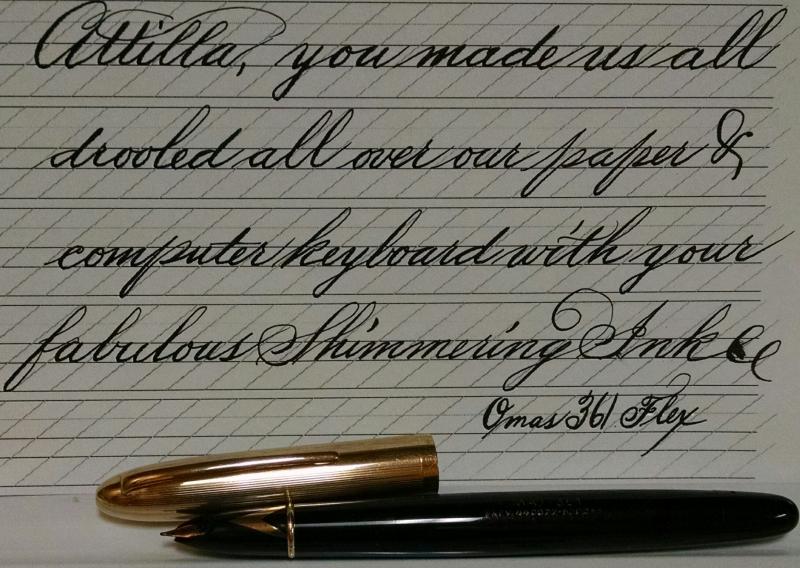 Attilla, you made us all
drooled all over our paper &
computer keyboard with your
fabulous Shimmering Ink
Omas 361 Flex